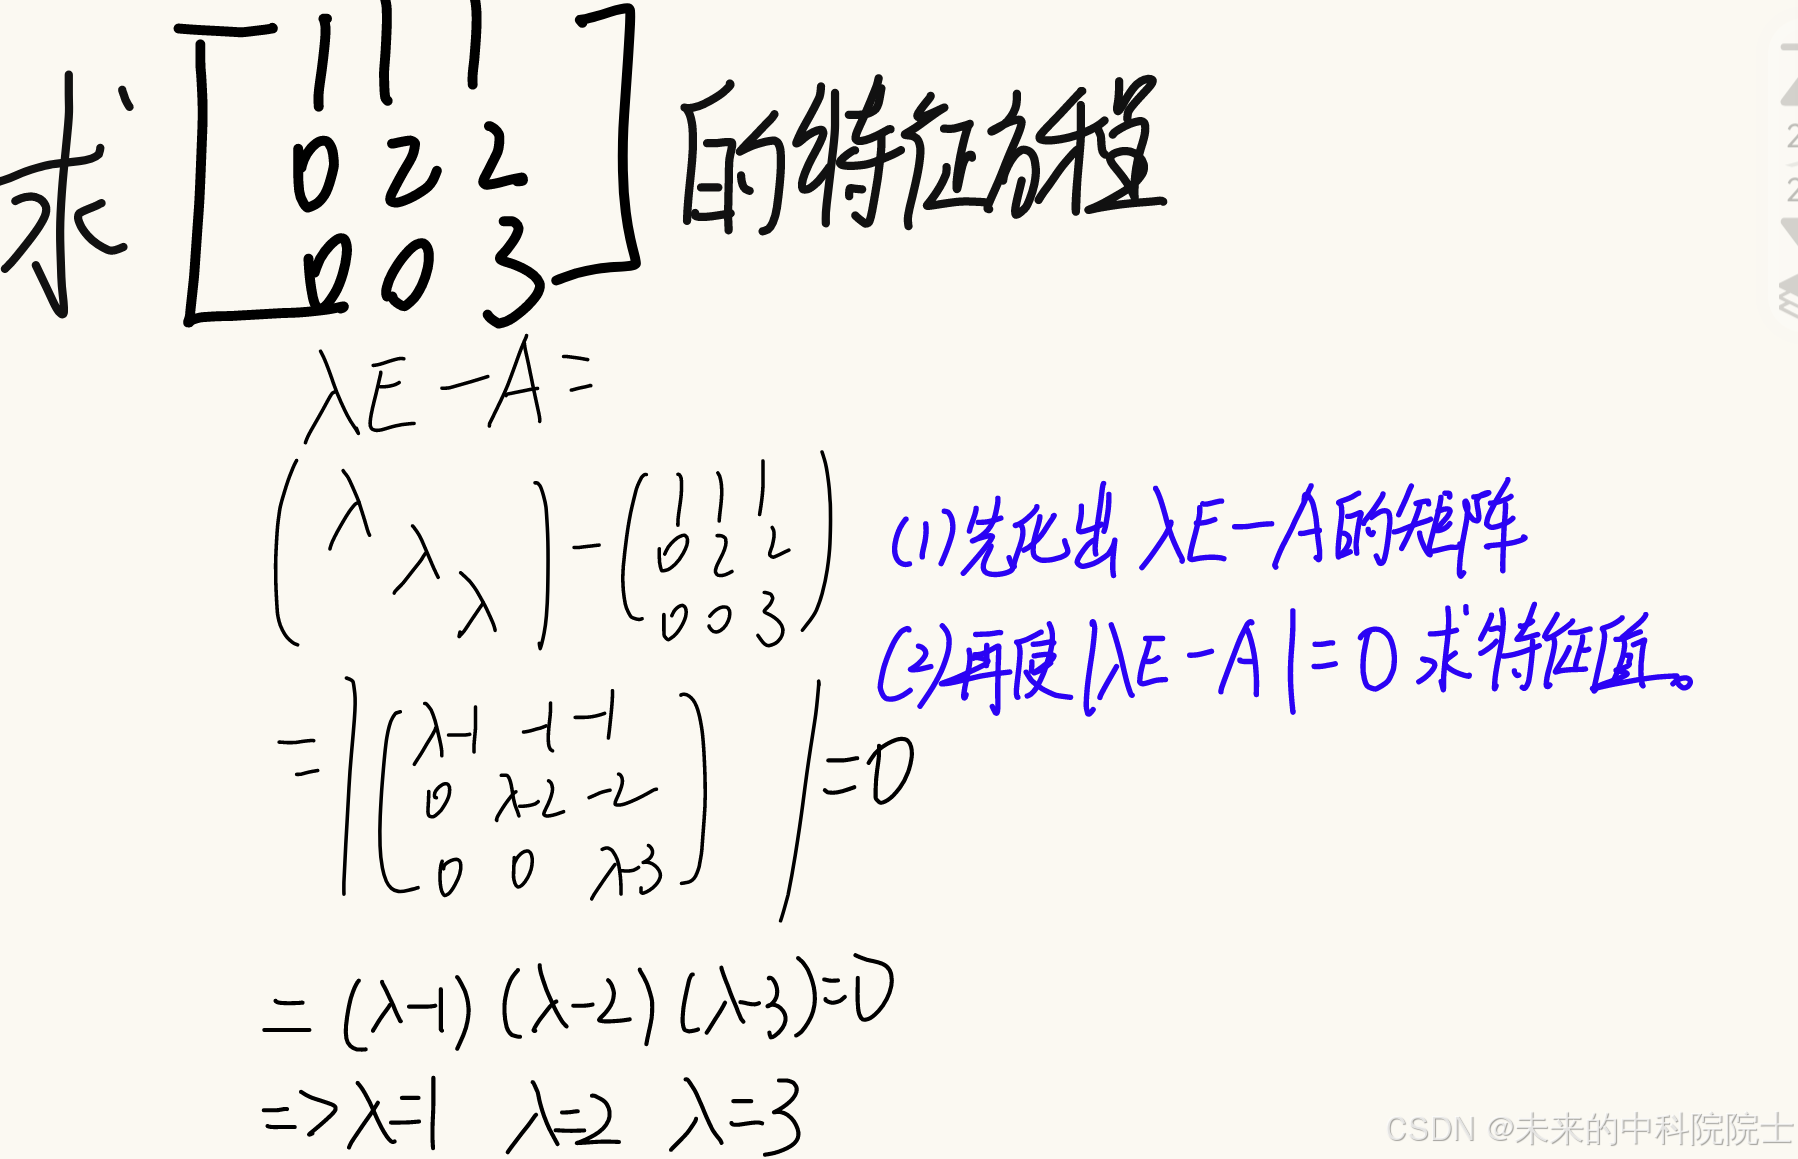 求[1 1 1
0 2 2
0 0 3]的特征方程
λE-A=
(λ
λ
λ)-(1 1 1
0 2 2
0 0 3)
(1)先化出λE-A的矩阵
(2)再使|λE-A|=0求特征值。
=|(λ-1 -1 -1
0 λ-2 -2
0 0 λ-3)|=0
=(λ-1)(λ-2)(λ-3)=0
=>λ=1 λ=2 λ=3
CSDN @未来的中科院院士